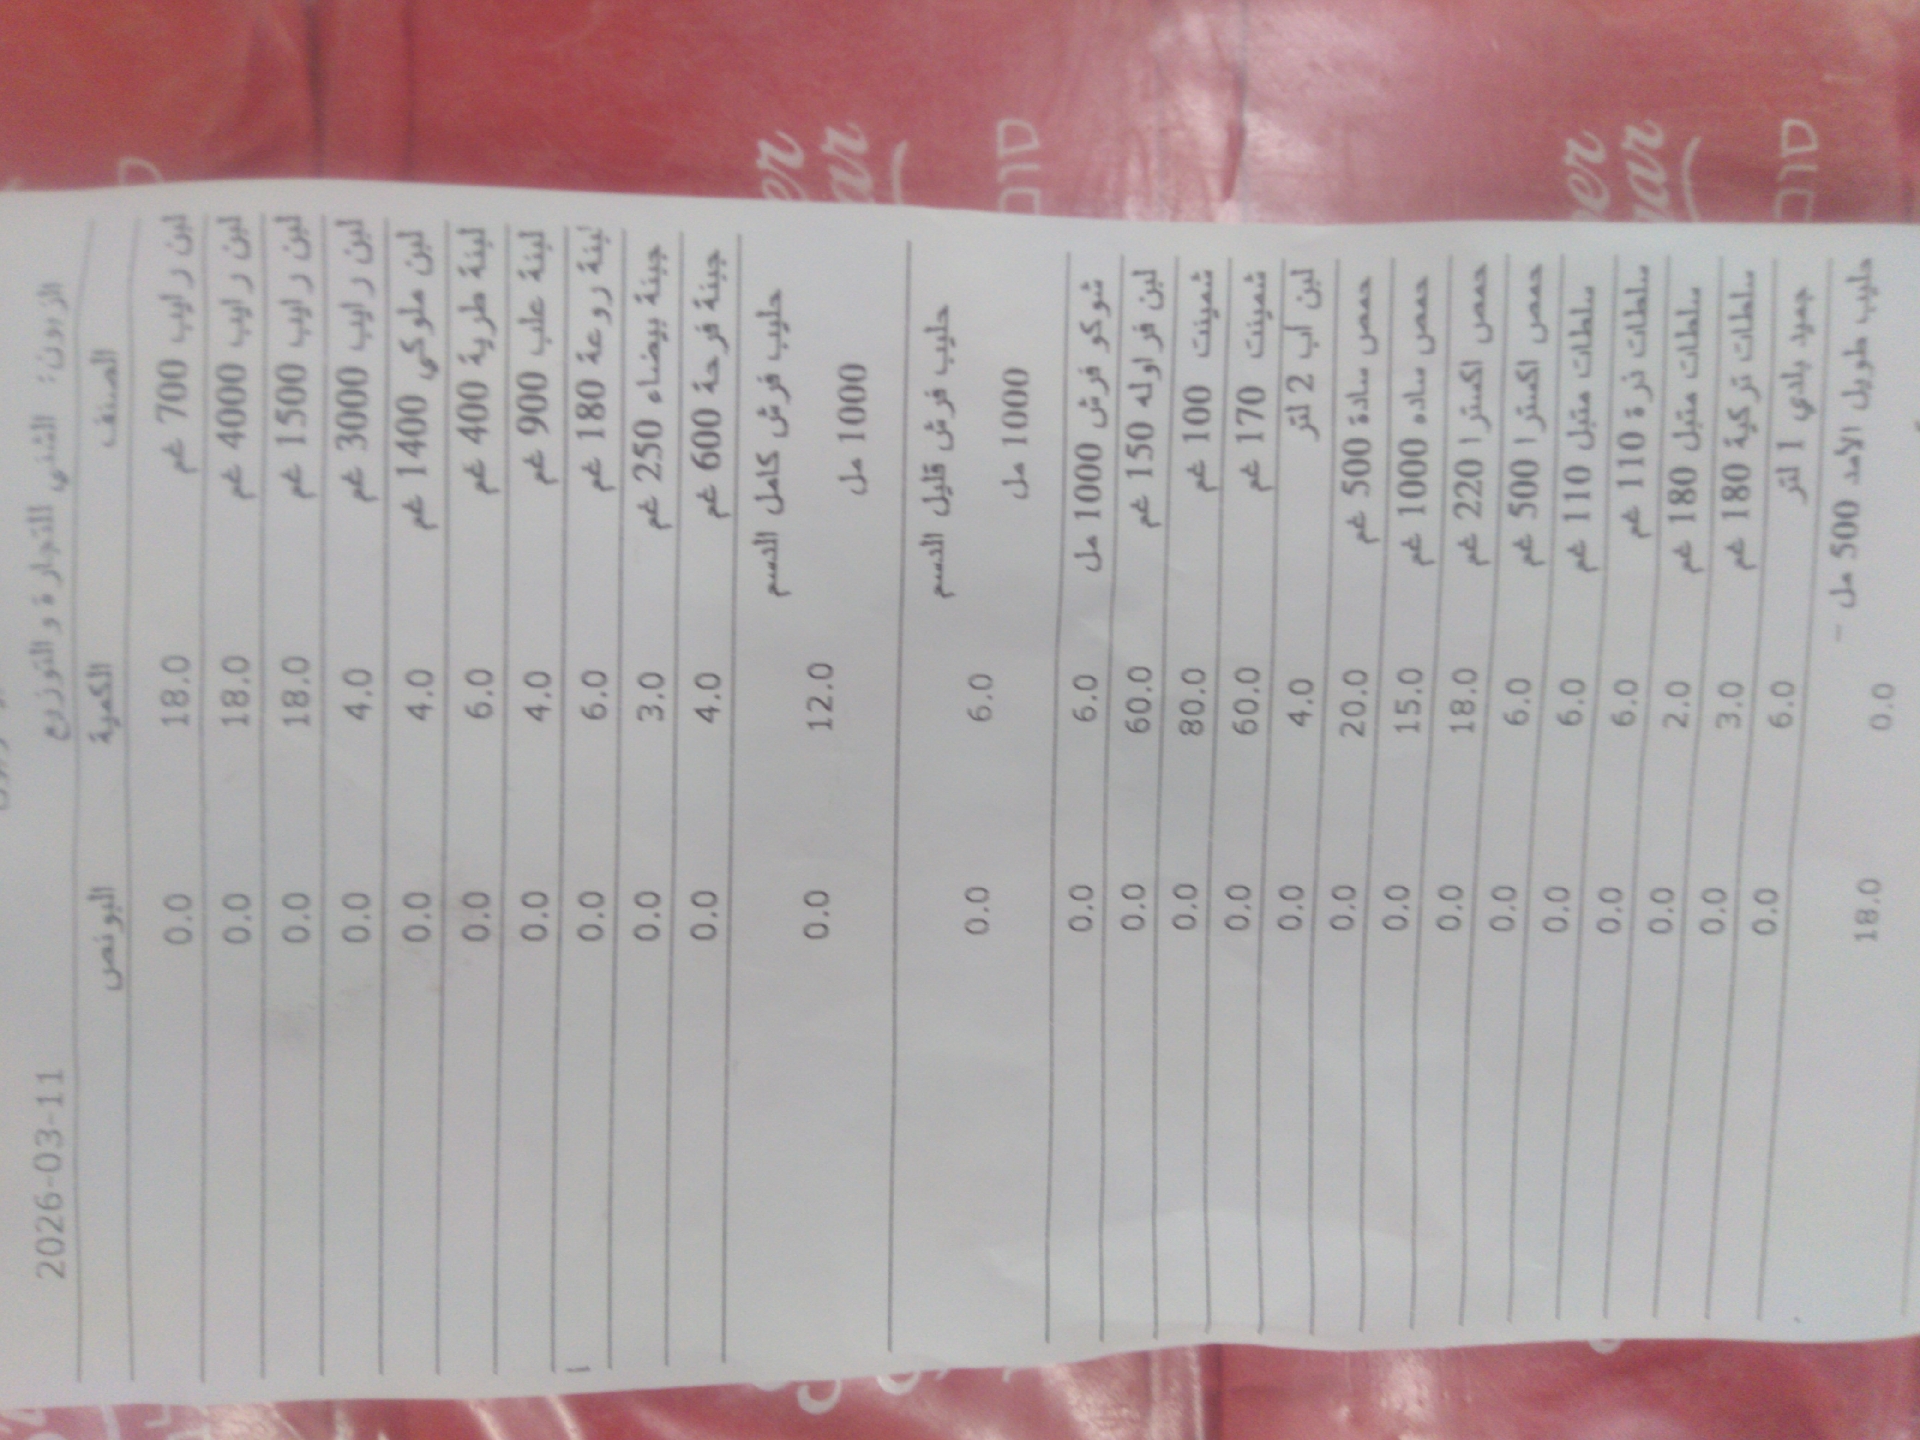 الزبون: الشني للتجارة والتوزيع 2026-03-11
الصنف الكمية البونص
لبن رايب 700 غم 18.0 0.0
لبن رايب 4000 غم 18.0 0.0
لبن رايب 1500 غم 18.0 0.0
لبن رايب 3000 غم 4.0 0.0
لبن ملوكي 1400 غم 4.0 0.0
لبنة طرية 400 غم 6.0 0.0
لبنة علب 900 غم 4.0 0.0
لبنة روعة 180 غم 6.0 0.0
جبنة بيضاء 250 غم 3.0 0.0
جبنة فرحة 600 غم 4.0 0.0
حليب فرش كامل الدسم
1000 مل 12.0 0.0
حليب فرش قليل الدسم
1000 مل 6.0 0.0
شوكو فرش 1000 مل 6.0 0.0
لبن فراوله 150 غم 60.0 0.0
شمينت 100 غم 80.0 0.0
شمينت 170 غم 60.0 0.0
لبن اب 2 لتر 4.0 0.0
حمص سادة 500 غم 20.0 0.0
حمص ساده 1000 غم 15.0 0.0
حمص اكسترا 220 غم 18.0 0.0
حمص اكسترا 500 غم 6.0 0.0
سلطات متبل 110 غم 6.0 0.0
سلطات ذرة 110 غم 6.0 0.0
سلطات متبل 180 غم 2.0 0.0
سلطات تركية 180 غم 3.0 0.0
جميد بلدي 1 لتر 6.0 0.0
حليب طويل الأمد 500 مل - 0.0 18.0